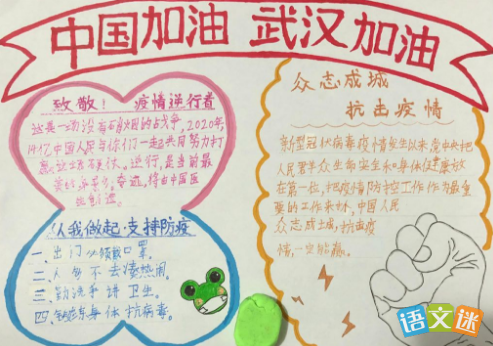 中国加油 武汉加油
致敬！ 疫情逆行者
这是一场没有硝烟的战争，2020年，
14亿中国人民与你们一起共同努力打
赢这场
逆行，是当前最
美的
奇迹，将由中国医
创造。
从我做起·支持防疫
一、出门必须戴口罩。
二、人多不去凑热闹。
三、勤洗手讲卫生。
四、锻炼身体抗病毒。
众志成城
抗击疫情
新型冠状病毒疫情发生以来，党中央把
人民群众生命安全和身体健康放
在第一位，把疫情防控工作作为最重
要的工作来抓，中国人民
众志成城，抗击疫
情，一定能赢。
语文迷